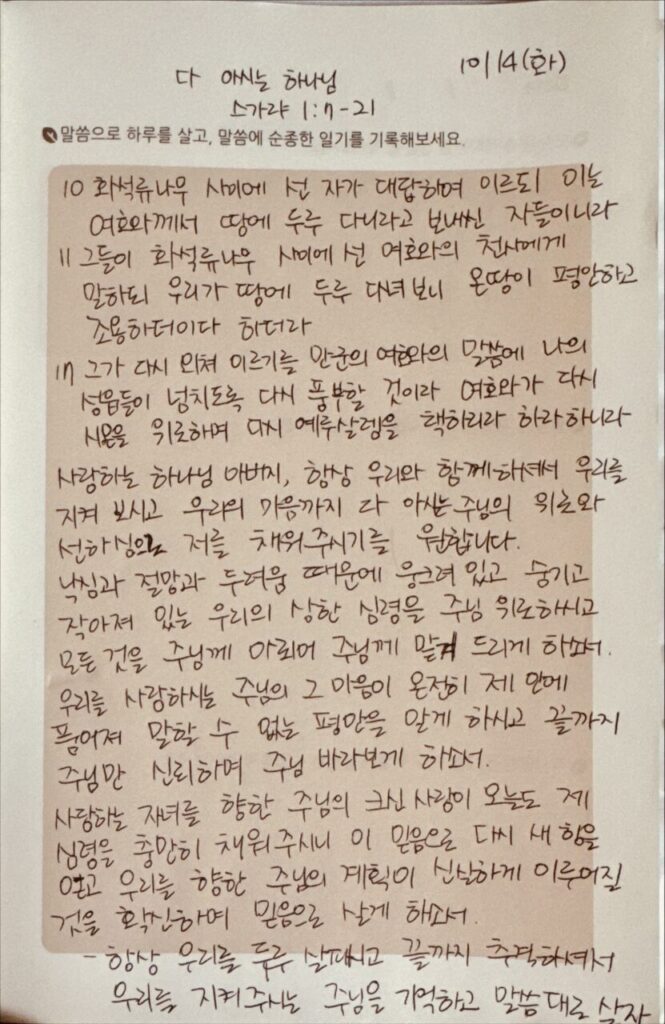 10/14(화)
다 아시는 하나님
스가랴 1:7-21
말씀으로 하루를 살고, 말씀에 순종한 일기를 기록해보세요.
10 화석류나무 사이에 선 자가 대답하여 이르되 이는
여호와께서 땅에 두루 다니라고 보내신 자들이니라
11 그들이 화석류나무 사이에 선 여호와의 천사에게
말하되 우리가 땅에 두루 다녀보니 온땅이 평안하고
조용하더이다 하더라
17 그가 다시 외쳐 이르기를 만군의 여호와의 말씀에 나의
성읍들이 넘치도록 다시 풍부할 것이라 여호와가 다시
시온을 위로하며 다시 예루살렘을 택하리라 하라하니라
사랑하는 하나님 아버지, 항상 우리와 함께하셔서 우리를
지켜 보시고 우리의 마음까지 다 아시는 주님의 위로와
선하심으로 저를 채워주시기를 원합니다.
낙심과 절망과 두려움 때문에 웅크려있고 숨기고
작아져 있는 우리의 상한 심령을 주님 위로하시고
모든 것을 주님께 아뢰어 주님께 맡겨 드리게 하소서.
우리를 사랑하시는 주님의 그 마음이 온전히 제 안에
품어져 말할 수 없는 평안을 알게 하시고 끝까지
주님만 신뢰하며 주님 바라보게 하소서.
사랑하는 자녀를 향한 주님의 크신 사랑이 오늘도 제
심령을 충만히 채워주시니 이 믿음으로 다시 새 힘을
얻고 우리를 향한 주님의 계획이 신실하게 이루어질
것을 확신하며 믿음으로 살게 하소서.
- 항상 우리를 두루 살피시고 끝까지 추격하셔서
우리를 지켜주시는 주님을 기억하고 말씀대로 살자